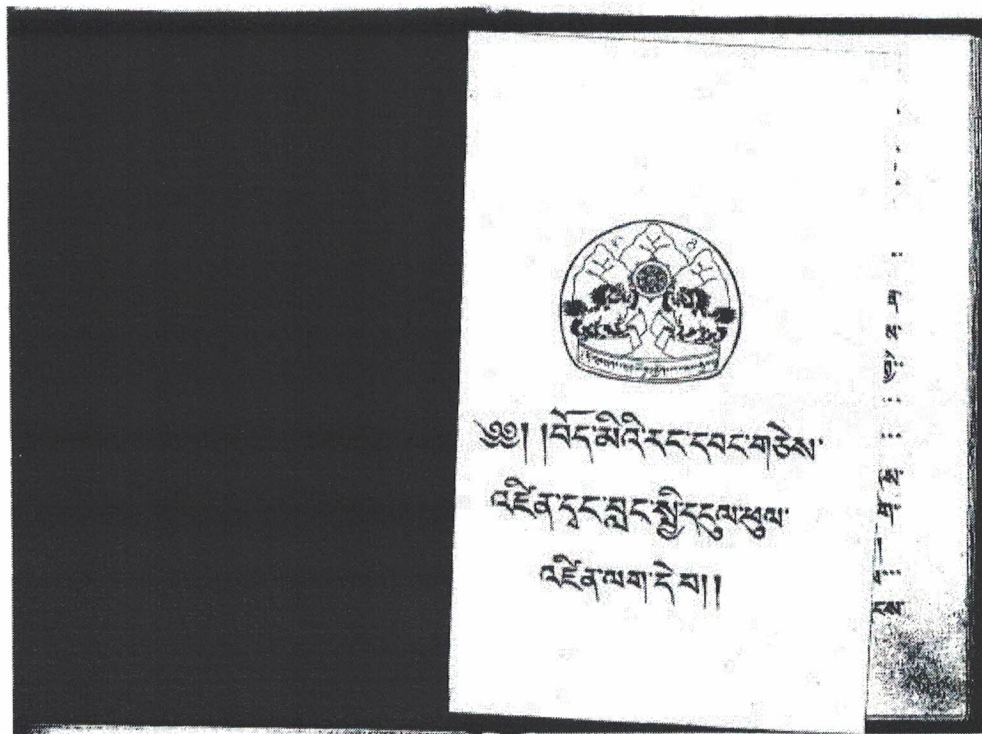 ༄༅། །བོད་མིའི་རང་དབང་གཅེས་
འཛིན་དྭང་བླང་སྤྱི་དངུལ་ཕུལ་
འཛིན་ལག་དེབ།།